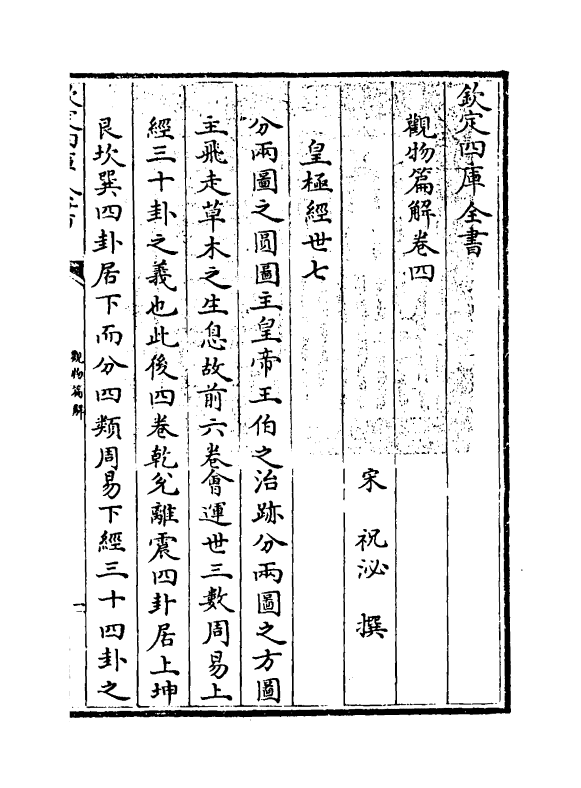 欽定四庫全書
觀物篇解卷四
宋 祝泌 撰
皇極經世七
分兩圖之圓圖主皇帝王伯之治跡分兩圖之方圖
主飛走草木之生息故前六卷會運世三數周易上
經三十卦之義也此後四卷乾兌離震四卦居上坤
艮坎巽四卦居下而分四類周易下經三十四卦之
欽定四庫全書
觀物篇解
一